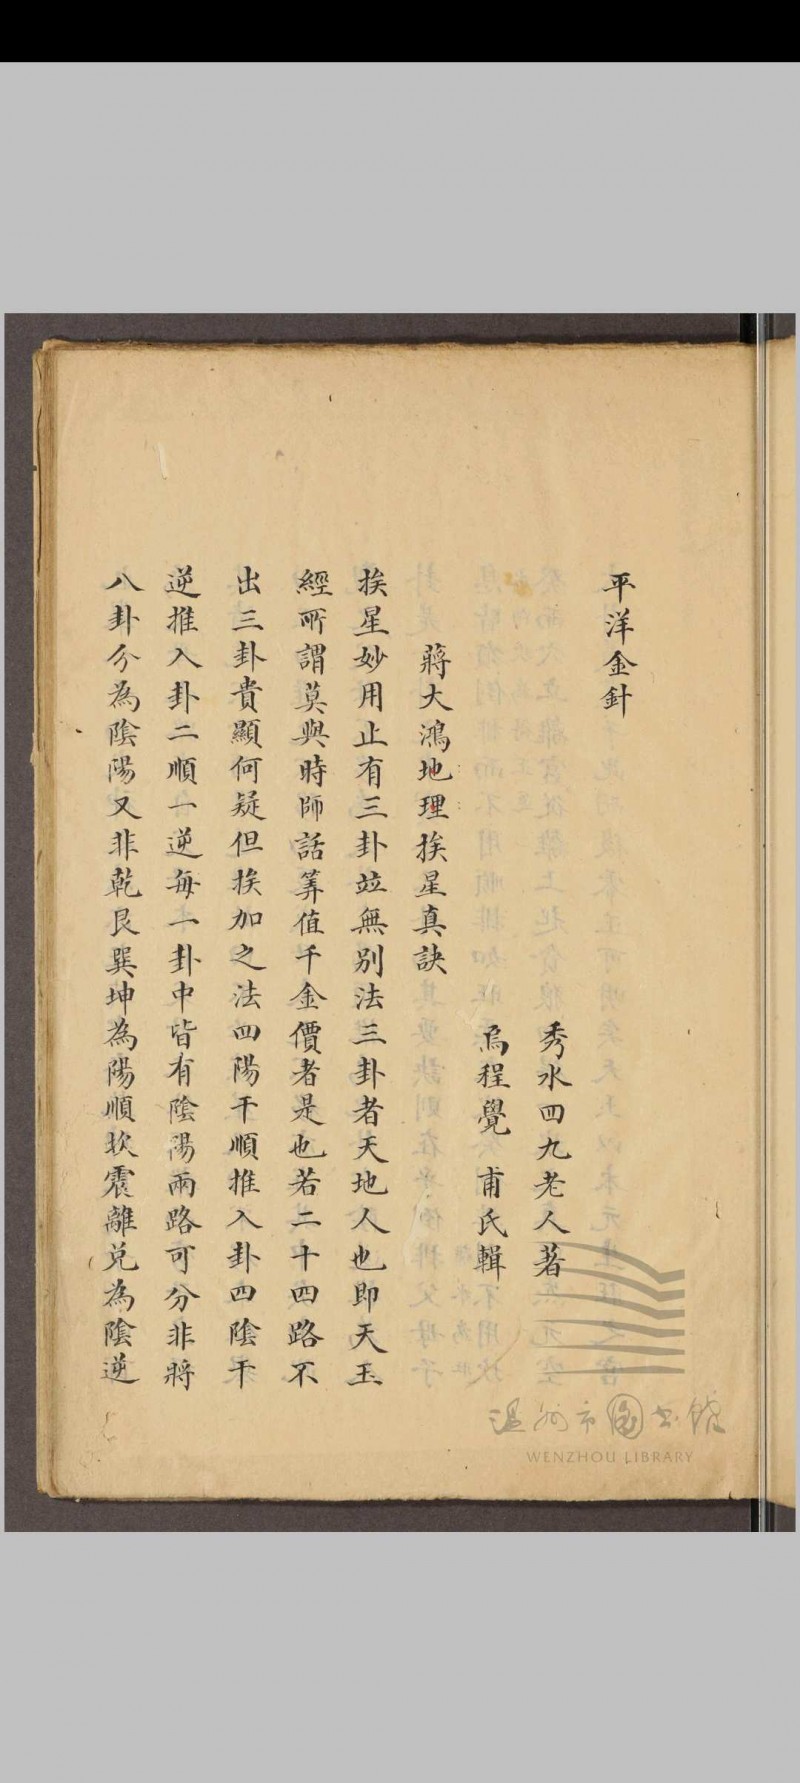 平洋金針
秀水四九老人著
烏程覺甫氏輯
蔣大鴻地理挨星真訣
挨星妙用止有三卦竝無別法三卦者天地人也即天玉
經所謂莫與時師話筭值千金價者是也若二十四路不
出三卦貴顯何疑但挨加之法四陽干順推入卦四陰干
逆推入卦二順一逆每一卦中皆有陰陽兩路可分非將
八卦分為陰陽又非乾艮巽坤為陽順坎震離兌為陰逆
溫州市圖書館
WENZHOU LIBRARY